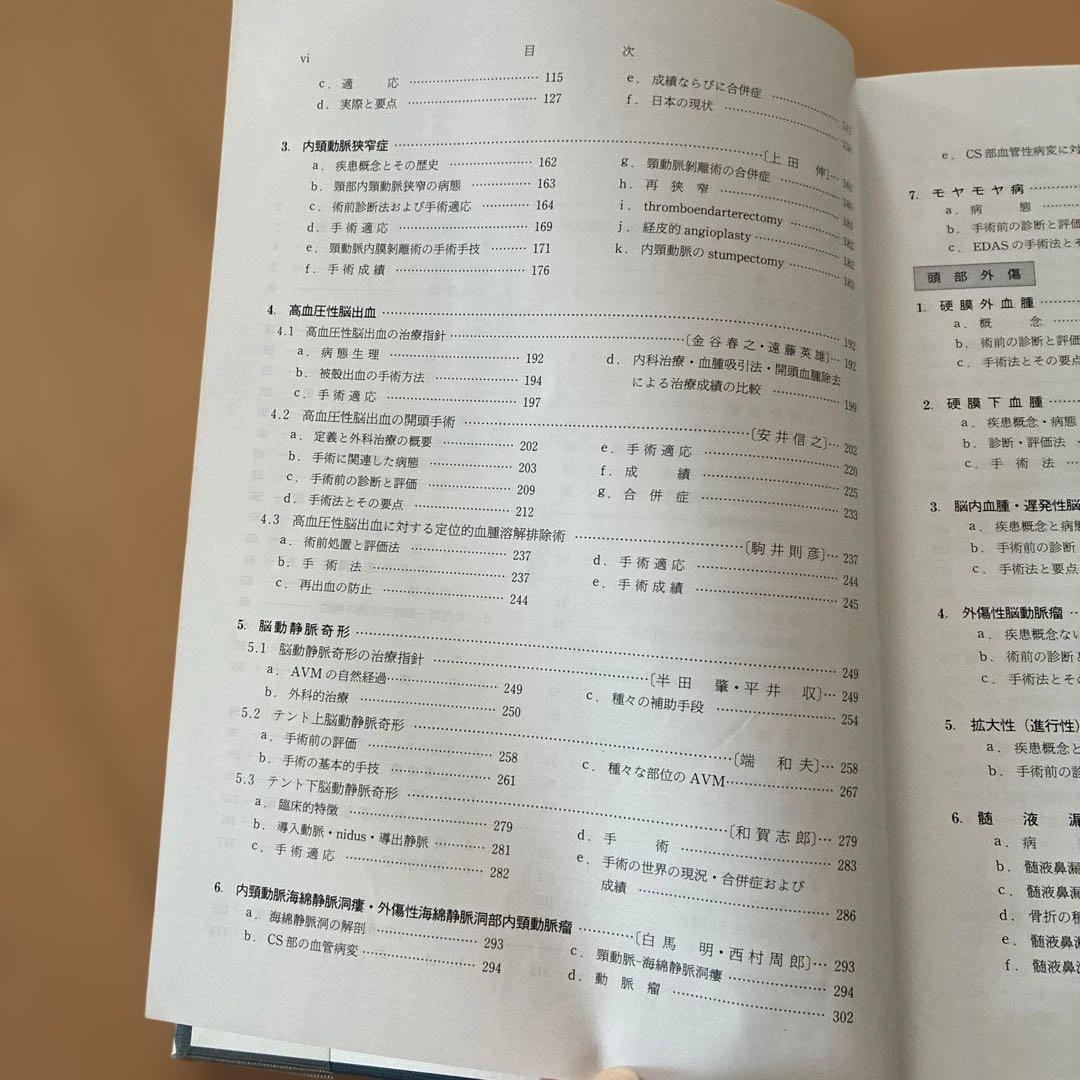 vi 目 次
c．適 応 115
d．実際と要点 127
e．成績ならびに合併症
f．日本の現状
3．内頸動脈狭窄症 〔上田 伸〕… 162
a．疾患概念とその歴史 162
b．頸部内頸動脈狭窄の病態 163
c．術前診断法および手術適応 164
d．手術適応 169
e．頸動脈内膜剝離術の手術手技 171
f．手術成績 176
g．頸動脈剝離術の合併症 180
h．再狭窄 181
i．thromboendarterectomy 182
j．経皮的 angioplasty 182
k．内頸動脈の stumpectomy 183
4．高血圧性脳出血 192
4.1 高血圧性脳出血の治療指針 〔金谷春之・遠藤英雄〕… 192
a．病態生理 192
b．被殻出血の手術方法 194
c．手術適応 197
d．内科治療・血腫吸引法・開頭血腫除去
による治療成績の比較 199
4.2 高血圧性脳出血の開頭手術 〔安井信之〕… 202
a．定義と外科治療の概要 202
b．手術に関連した病態 203
c．手術前の診断と評価 209
d．手術法とその要点 212
e．手術適応 220
f．成 績 225
g．合併症 233
4.3 高血圧性脳出血に対する定位的血腫溶解排除術 〔駒井則彦〕… 237
a．術前処置と評価法 237
b．手術法 237
c．再出血の防止 244
d．手術適応 244
e．手術成績 245
5．脳動静脈奇形 249
5.1 脳動静脈奇形の治療指針 〔半田 肇・平井 収〕… 249
a．AVM の自然経過 249
b．外科的治療 250
c．種々の補助手段 254
5.2 テント上脳動静脈奇形 〔端 和夫〕… 258
a．手術前の評価 258
b．手術の基本的手技 261
c．種々な部位の AVM 267
5.3 テント下脳動静脈奇形 〔和賀志郎〕… 279
a．臨床的特徴 279
b．導入動脈・nidus・導出静脈 281
c．手術適応 282
d．手 術 283
e．手術の世界の現況・合併症および
成績 286
6．内頸動脈海綿静脈洞瘻・外傷性海綿静脈洞部内頸動脈瘤 〔白馬 明・西村周郎〕… 293
a．海綿静脈洞の解剖 293
b．CS 部の血管病変 294
c．頸動脈-海綿静脈洞瘻 294
d．動脈瘤 302
e．CS 部血管性病変に対
7．モヤモヤ病
a．病 態
b．手術前の診断と評価
c．EDAS の手術法とそ
頭部外傷
1．硬膜外血腫
a．概 念
b．術前の診断と評価
c．手術法とその要点
2．硬膜下血腫
a．疾患概念・病態
b．診断・評価法
c．手術法
3．脳内血腫・遅発性脳
a．疾患概念と病態
b．手術前の診断
c．手術法と要点
4．外傷性脳動脈瘤
a．疾患概念ない
b．術前の診断と
c．手術法とその
5．拡大性（進行性）
a．疾患概念と
b．手術前の診
6．髄液漏
a．病
b．髄液鼻漏
c．髄液鼻漏
d．骨折の種
e．髄液鼻漏
f．髄液鼻漏